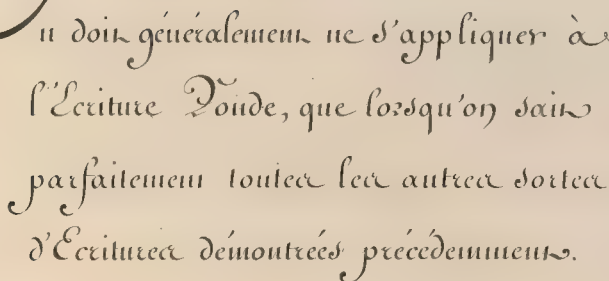 On doit généralement ne s'appliquer à
l'Ecriture Ronde, que lorsqu'on sait
parfaitement toutes les autres sortes
d'Ecritures démontrées précédemment.